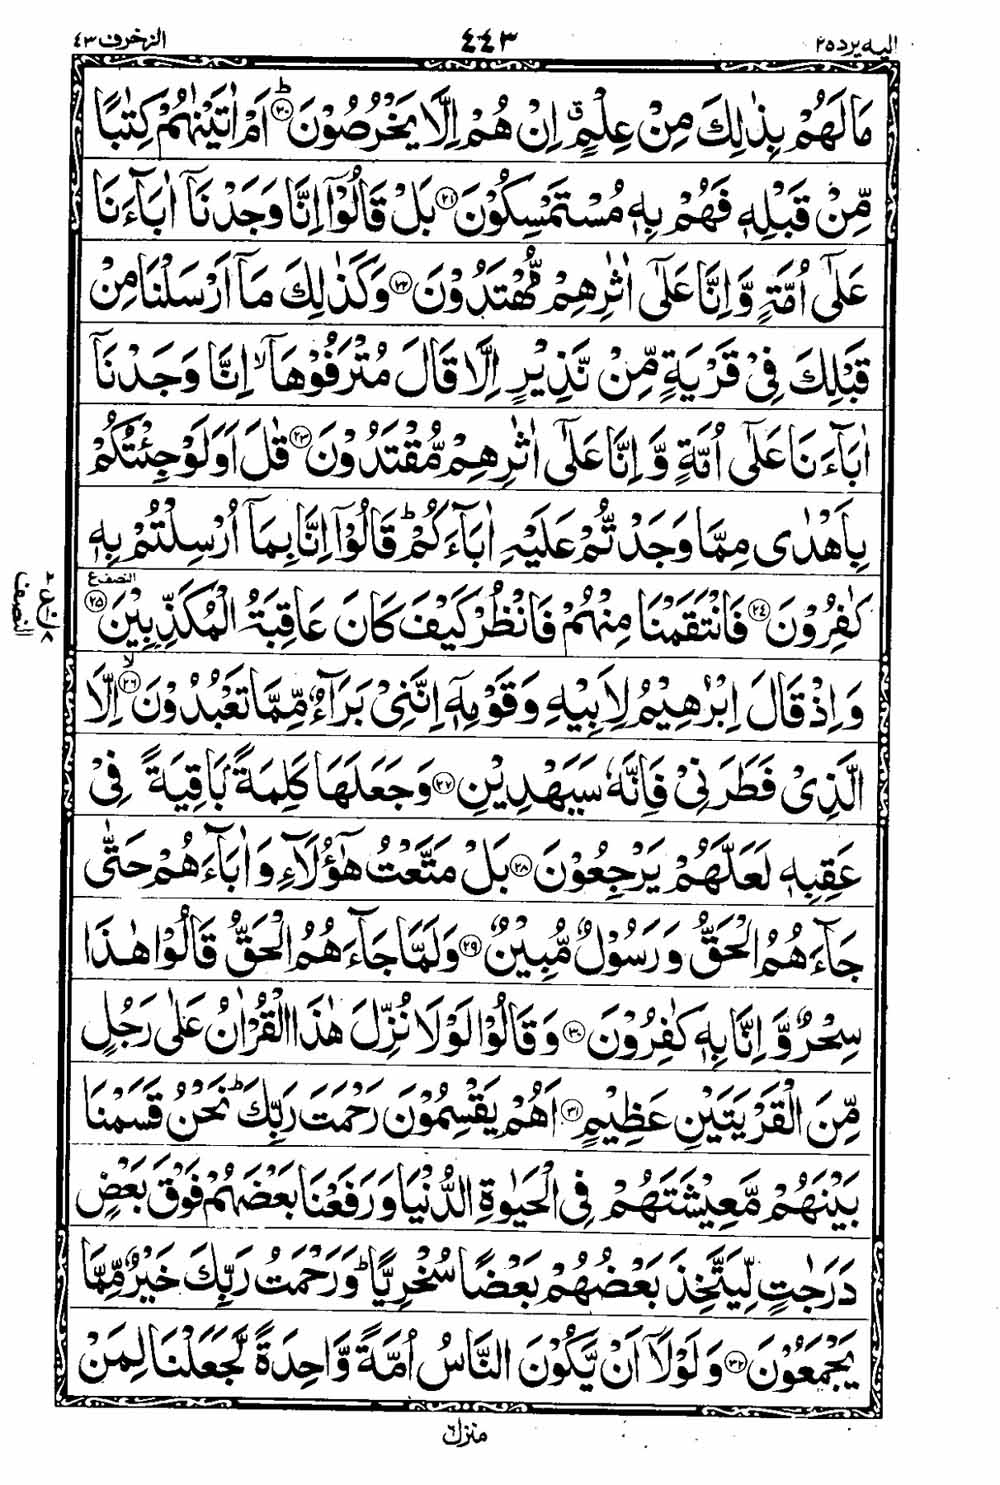 الیه یرد ۲۵ ۴۴۳ الزخرف ۴۳
مَا لَهُمْ بِذٰلِكَ مِنْ عِلْمٍ ۗ اِنْ هُمْ اِلَّا يَخْرُصُوْنَ ۲۰ ؕ اَمْ اٰتَيْنٰهُمْ كِتٰبًا
مِّنْ قَبْلِهٖ فَهُمْ بِهٖ مُسْتَمْسِكُوْنَ ۲۱ بَلْ قَالُوْۤا اِنَّا وَجَدْنَاۤ اٰبَآءَنَا
عَلٰۤى اُمَّةٍ وَّ اِنَّا عَلٰۤى اٰثٰرِهِمْ مُّهْتَدُوْنَ ۲۲ وَ كَذٰلِكَ مَاۤ اَرْسَلْنَا مِنْ
قَبْلِكَ فِيْ قَرْيَةٍ مِّنْ نَّذِيْرٍ اِلَّا قَالَ مُتْرَفُوْهَاۤ ۙ اِنَّا وَجَدْنَاۤ
اٰبَآءَنَا عَلٰۤى اُمَّةٍ وَّ اِنَّا عَلٰۤى اٰثٰرِهِمْ مُّقْتَدُوْنَ ۲۳ قٰلَ اَوَ لَوْ جِئْتُكُمْ
بِاَهْدٰى مِمَّا وَجَدْتُّمْ عَلَيْهِ اٰبَآءَكُمْ ؕ قَالُوْۤا اِنَّا بِمَاۤ اُرْسِلْتُمْ بِهٖ
كٰفِرُوْنَ ۲۴ فَانْتَقَمْنَا مِنْهُمْ فَانْظُرْ كَيْفَ كَانَ عَاقِبَةُ الْمُكَذِّبِيْنَ ۲۵ النصف ع
النصف
وَ اِذْ قَالَ اِبْرٰهِيْمُ لِاَبِيْهِ وَ قَوْمِهٖۤ اِنَّنِيْ بَرَآءٌ مِّمَّا تَعْبُدُوْنَ ۲۶ ۙ اِلَّا
الَّذِيْ فَطَرَنِيْ فَاِنَّهٗ سَيَهْدِيْنِ ۲۷ وَ جَعَلَهَا كَلِمَةًۢ بَاقِيَةً فِيْ
عَقِبِهٖ لَعَلَّهُمْ يَرْجِعُوْنَ ۲۸ بَلْ مَتَّعْتُ هٰۤؤُلَآءِ وَ اٰبَآءَهُمْ حَتّٰى
جَآءَهُمُ الْحَقُّ وَ رَسُوْلٌ مُّبِيْنٌ ۲۹ وَ لَمَّا جَآءَهُمُ الْحَقُّ قَالُوْا هٰذَا
سِحْرٌ وَّ اِنَّا بِهٖ كٰفِرُوْنَ ۳۰ وَ قَالُوْا لَوْ لَا نُزِّلَ هٰذَا الْقُرْاٰنُ عَلٰى رَجُلٍ
مِّنَ الْقَرْيَتَيْنِ عَظِيْمٍ ۳۱ اَهُمْ يَقْسِمُوْنَ رَحْمَتَ رَبِّكَ ؕ نَحْنُ قَسَمْنَا
بَيْنَهُمْ مَّعِيْشَتَهُمْ فِي الْحَيٰوةِ الدُّنْيَا وَ رَفَعْنَا بَعْضَهُمْ فَوْقَ بَعْضٍ
دَرَجٰتٍ لِّيَتَّخِذَ بَعْضُهُمْ بَعْضًا سُخْرِيًّا ؕ وَ رَحْمَتُ رَبِّكَ خَيْرٌ مِّمَّا
يَجْمَعُوْنَ ۳۲ وَ لَوْ لَاۤ اَنْ يَّكُوْنَ النَّاسُ اُمَّةً وَّاحِدَةً لَّجَعَلْنَا لِمَنْ
منزل ۶